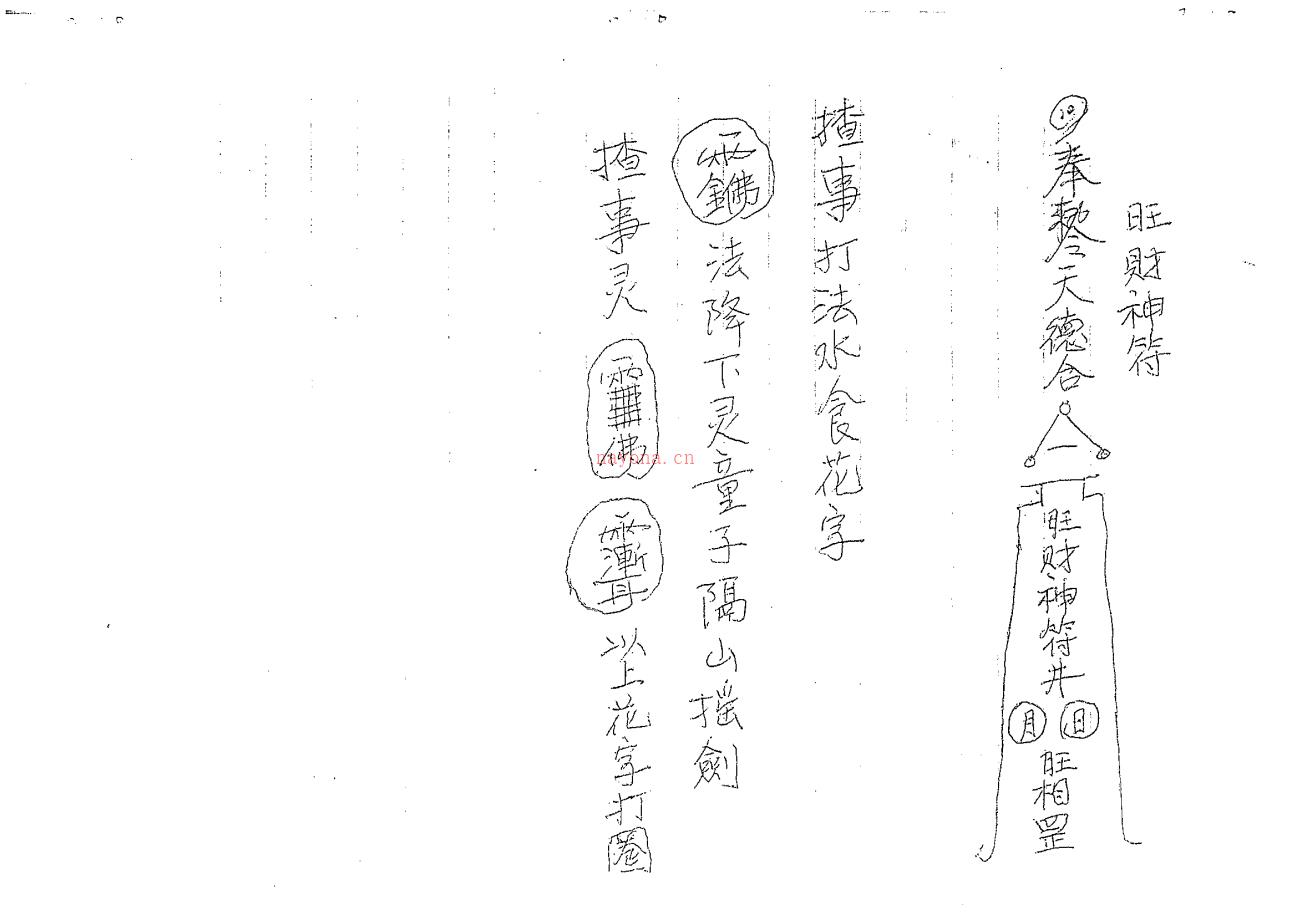 旺財神符
奉勅令天德合
旺財神符井
月 日
旺相罡
揸事打法水食花字
法降下灵童子隔山摇劍
揸事灵 以上花字打圈
nayona.cn